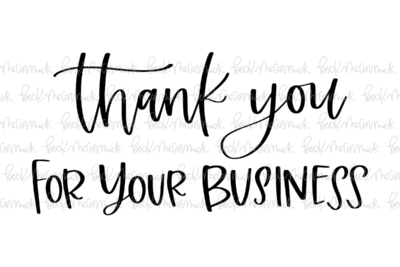 thank you
FOR YOUR BUSINESS